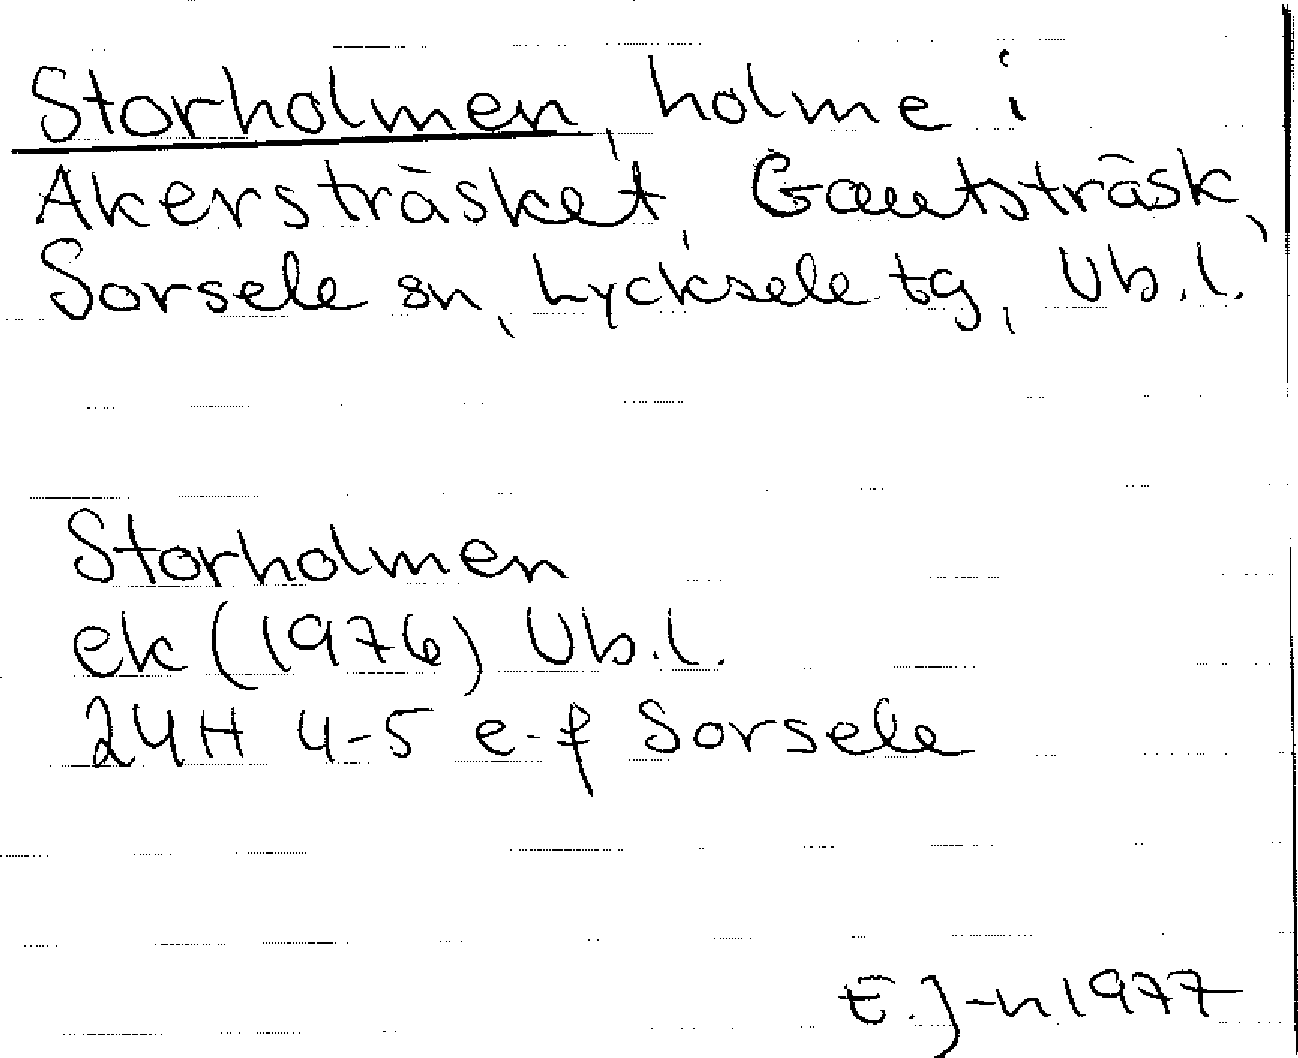 Storholmen, holme i
Akersträsket, Gautsträsk,
Sorsele sn, Lycksele tg, Vb.l.
Storholmen
ek (1976) Vb.l.
24H 4-5 e-f Sorsele
E.J-n 1977